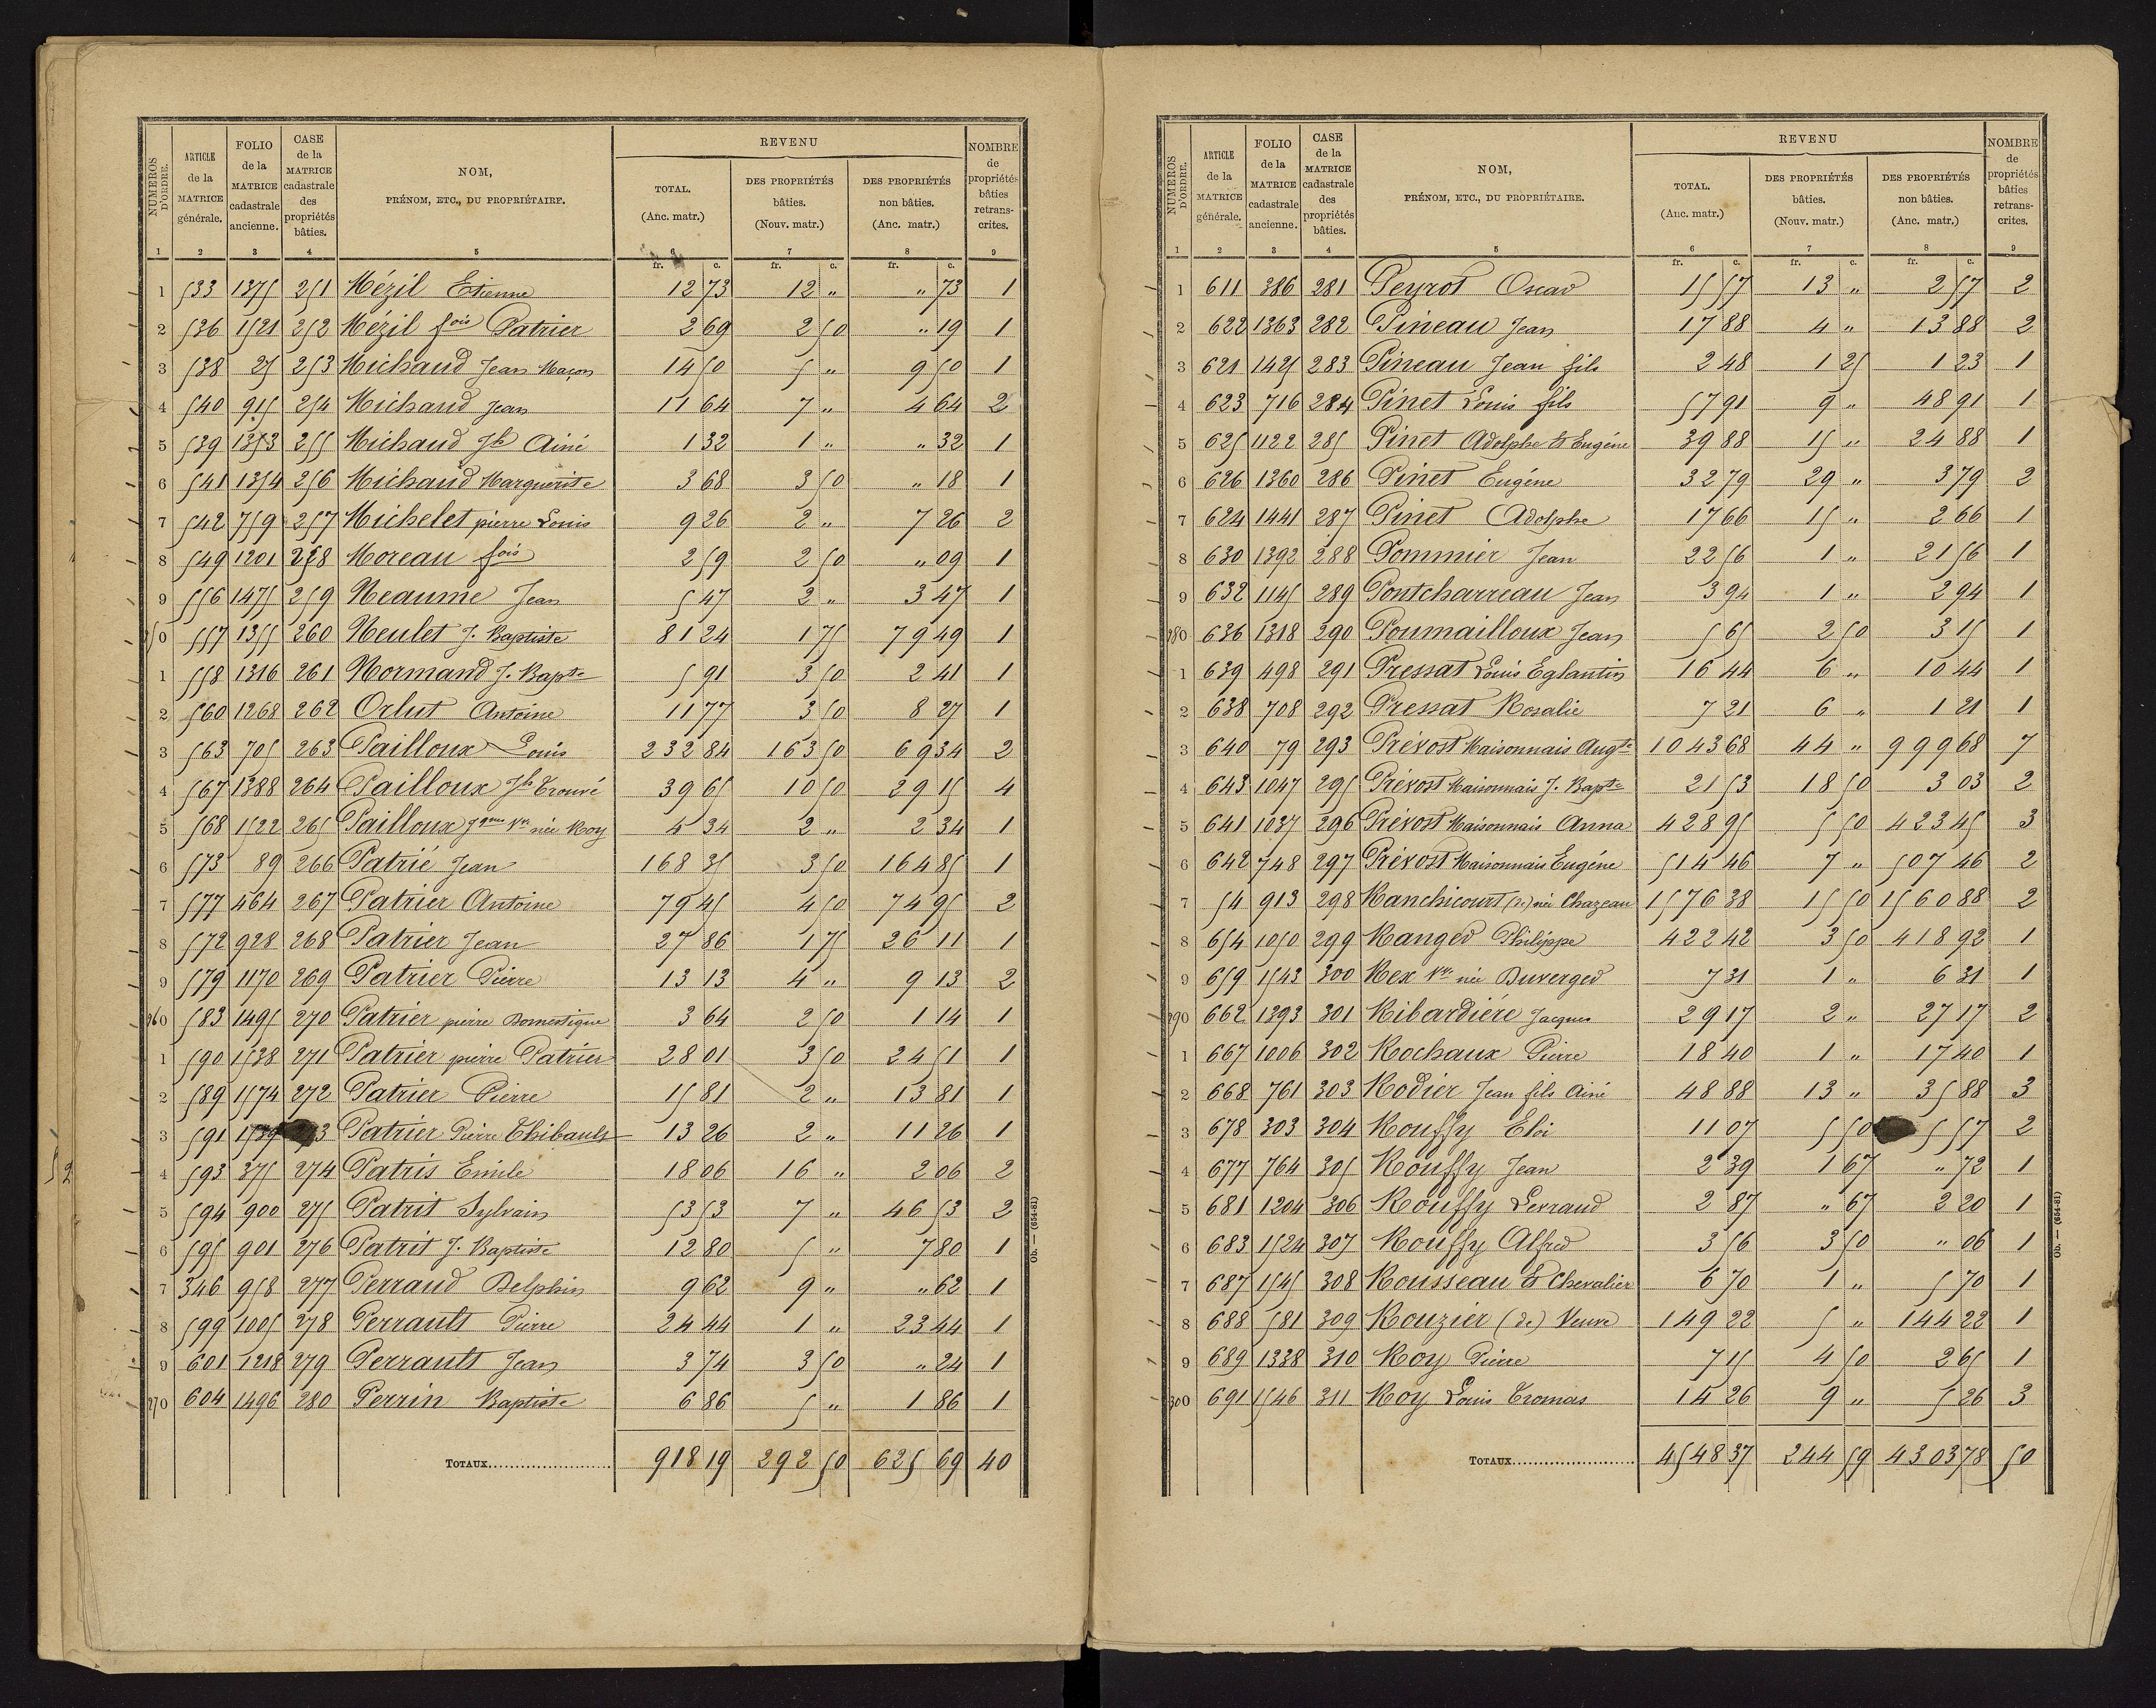 NUMEROS D'ORDRE. | ARTICLE de la MATRICE générale. | FOLIO de la MATRICE cadastrale ancienne. | CASE de la MATRICE cadastrale des propriétés bâties. | NOM, PRÉNOM, ETC., DU PROPRIÉTAIRE. | REVENU | NOMBRE de propriétés bâties retranscrites.
TOTAL. (Anc. matr.) | DES PROPRIÉTÉS bâties. (Nouv. matr.) | DES PROPRIÉTÉS non bâties. (Anc. matr.)
1 2 3 4 5 6 7 8 9
fr. c. fr. c. fr. c.
1 533 1375 251 Mézil Etienne 12 73 12 " " 73 1
2 536 1521 252 Mézil fois Patrier 2 69 2 50 " 19 1
3 538 25 253 Michaud Jean Maçon 14 50 5 " 9 50 1
4 540 915 254 Michaud Jean 11 64 7 " 4 64 2
5 539 1353 255 Michaud Jh Ainé 1 32 1 " " 32 1
6 541 1354 256 Michaud Marguerite 3 68 3 50 " 18 1
7 542 759 257 Michelet pierre Louis 9 26 2 " 7 26 2
8 549 1201 258 Moreau fois 2 59 2 50 " 09 1
9 556 1475 259 Neaume Jean 5 47 2 " 3 47 1
250 557 1355 260 Neulet J. Baptiste 81 24 1 75 79 49 1
1 558 1316 261 Normand J. Bapte 5 91 3 50 2 41 1
2 560 1268 262 Orlut Antoine 11 77 3 50 8 27 1
3 563 705 263 Pailloux Louis 232 84 163 50 69 34 2
4 567 1388 264 Pailloux Jh Trouvé 39 65 10 50 29 15 4
5 568 1522 265 Pailloux Jques Ve née Roy 4 34 2 " 2 34 1
6 573 89 266 Patrié Jean 168 35 3 50 164 85 1
7 577 464 267 Patrier Antoine 79 45 4 50 74 95 2
8 572 928 268 Patrier Jean 27 86 1 75 26 11 1
9 579 1170 269 Patrier Pierre 13 13 4 " 9 13 2
260 583 1495 270 Patrier pierre Domestique 3 64 2 50 1 14 1
1 590 1538 271 Patrier pierre Patrier 28 01 3 50 24 51 1
2 589 1574 272 Patrier Pierre 15 81 2 " 13 81 1
3 591 1539 273 Patrier Pierre Thibault 13 26 2 " 11 26 1
4 593 375 274 Patris Emile 18 06 16 " 2 06 2
5 594 900 275 Patrit Sylvain 53 53 7 " 46 53 2
6 595 901 276 Patrit J. Baptiste 12 80 5 " 7 80 1
7 346 958 277 Perraud Delphin 9 62 9 " " 62 1
8 599 1005 278 Perrault Pierre 24 44 1 " 23 44 1
9 601 1218 279 Perrault Jean 3 74 3 50 " 24 1
270 604 1496 280 Perrin Baptiste 6 86 5 " 1 86 1
TOTAUX 918 19 292 50 625 69 40
Ob. — (654-81)
NUMEROS D'ORDRE. | ARTICLE de la MATRICE générale. | FOLIO de la MATRICE cadastrale ancienne. | CASE de la MATRICE cadastrale des propriétés bâties. | NOM, PRÉNOM, ETC., DU PROPRIÉTAIRE. | REVENU | NOMBRE de propriétés bâties retranscrites.
TOTAL. (Anc. matr.) | DES PROPRIÉTÉS bâties. (Nouv. matr.) | DES PROPRIÉTÉS non bâties. (Anc. matr.)
1 2 3 4 5 6 7 8 9
fr. c. fr. c. fr. c.
1 611 386 281 Peyrot Oscar 15 57 13 " 2 57 2
2 622 1363 282 Pineau Jean 17 88 4 " 13 88 2
3 621 1425 283 Pineau Jean fils 2 48 1 25 1 23 1
4 623 716 284 Pinet Louis fils 57 91 9 " 48 91 1
5 625 1122 285 Pinet Adolphe & Eugène 39 88 15 " 24 88 1
6 626 1360 286 Pinet Eugène 32 79 29 " 3 79 2
7 624 1441 287 Pinet Adolphe 17 66 15 " 2 66 1
8 630 1392 288 Pommier Jean 22 56 1 " 21 56 1
9 632 1145 289 Pontcharreau Jean 3 94 1 " 2 94 1
280 636 1318 290 Poumailloux Jean 5 65 2 50 3 15 1
1 639 498 291 Pressat Louis Eglantin 16 44 6 " 10 44 1
2 638 708 292 Pressat Rosalie 7 21 6 " 1 21 1
3 640 79 293 Prévost Maisonnais Augte 1043 68 44 " 999 68 7
4 643 1047 295 Prévost Maisonnais J. Bapte 21 53 18 50 3 03 2
5 641 1037 296 Prévost Maisonnais Anna 428 95 5 50 423 45 3
6 642 748 297 Prévost Maisonnais Eugène 514 46 7 " 507 46 2
7 54 913 298 Ranchicourt (de) née Chazeau 1576 38 15 50 1560 88 2
8 654 1050 299 Ranger Philippe 422 42 3 50 418 92 1
9 659 1543 300 Rex Ve née Duverger 7 31 1 " 6 31 1
290 662 1393 301 Ribardière Jacques 29 17 2 " 27 17 2
1 667 1006 302 Rochaux Pierre 18 40 1 " 17 40 1
2 668 761 303 Rodier Jean fils Ainé 48 88 13 " 35 88 3
3 678 303 304 Rouffy Eloi 11 07 5 50 5 57 2
4 677 764 305 Rouffy Jean 2 39 1 67 " 72 1
5 681 1204 306 Rouffy Levraud 2 87 " 67 2 20 1
6 683 1524 307 Rouffy Alfred 3 56 3 50 " 06 1
7 687 1545 308 Rousseau & Chevalier 6 70 1 " 5 70 1
8 688 581 309 Rouzier (de) Veuve 149 22 5 " 144 22 1
9 689 1338 310 Roy Pierre 7 15 4 50 2 65 1
300 691 1546 311 Roy Louis Tromas 14 26 9 " 5 26 3
TOTAUX 4548 37 244 59 4303 78 50
Ob. — (654-81)